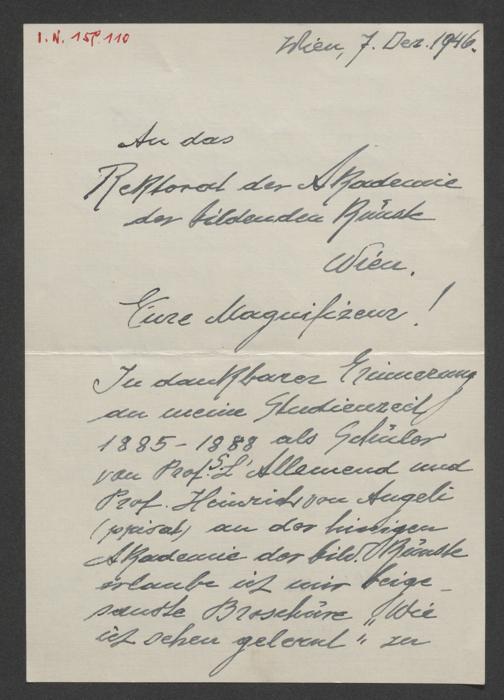 I.N. 158.110
Wien, 7. Dez. 1946.
An das
Rektorat der Akademie
der bildenden Künste
Wien.
Eure Magnifizenz!
In dankbarer Erinnerung
an meine Studienzeit
1885-1888 als Schüler
von Prof. S. L'Allemand und
Prof. Heinrich von Angeli
(privat) an der hiesigen
Akademie der bild. Künste
erlaube ich mir beige-
sandte Broschüre „Wie
ich sehen gelernt" zu